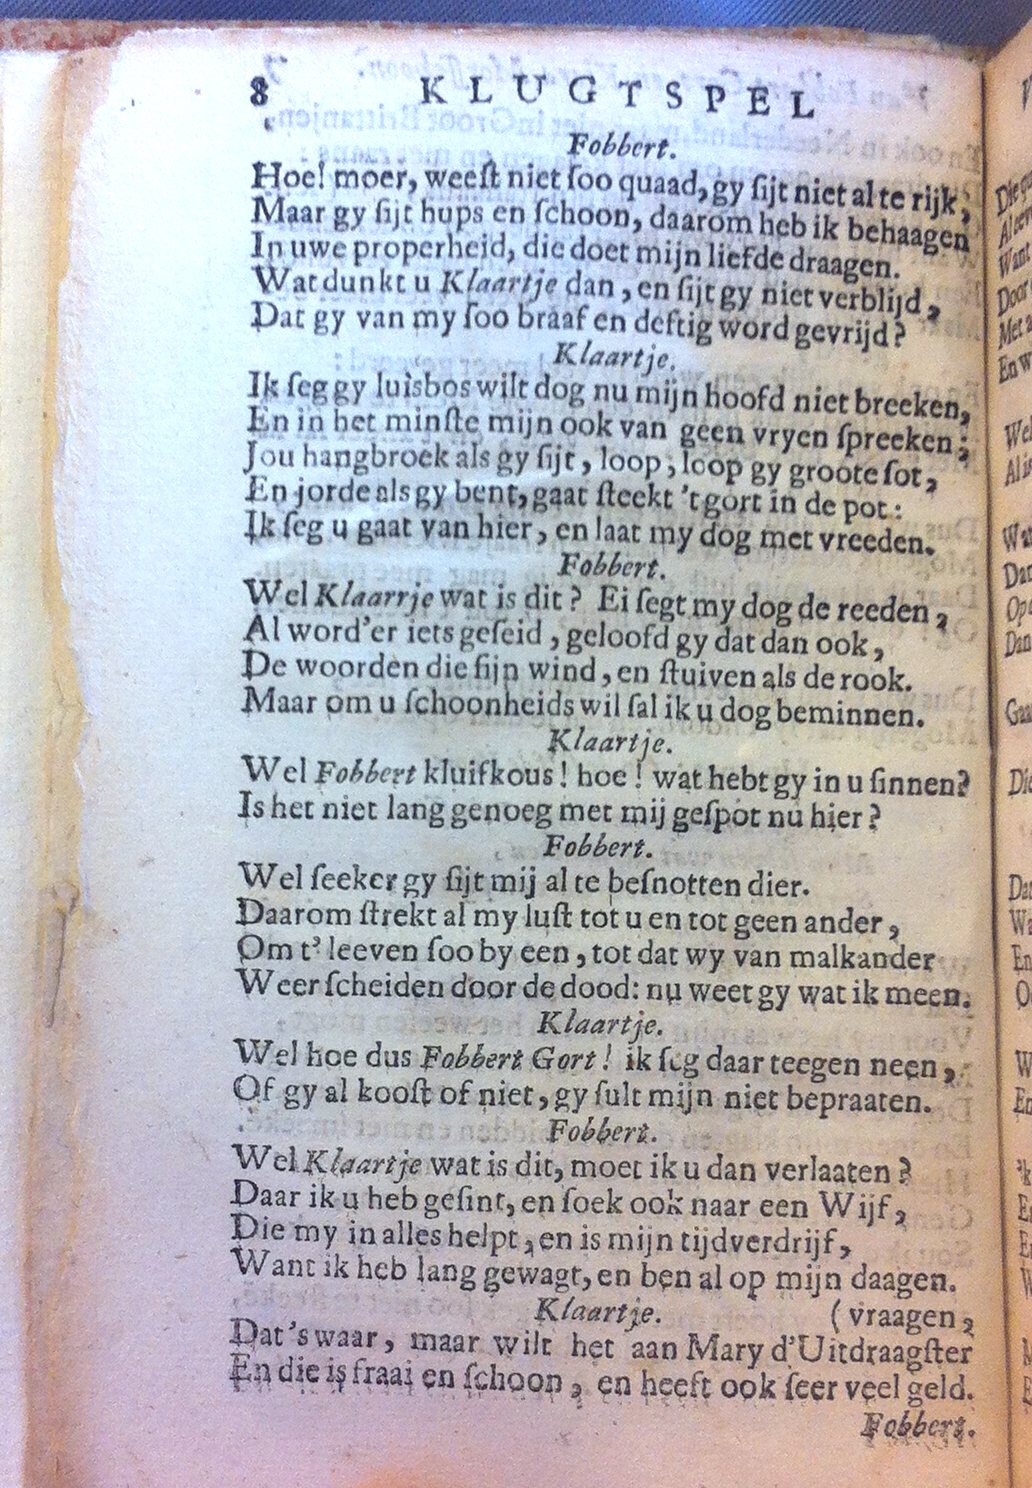 8 KLUGTSPEL
Fobbert.
Hoe! moer, weeſt niet ſoo quaad, gy ſijt niet al te rijk,
Maar gy ſijt hups en ſchoon, daarom heb ik behaagen
In uwe properheid, die doet mijn liefde draagen.
Wat dunkt u Klaartje dan, en ſijt gy niet verblijd,
Dat gy van my ſoo braaf en deftig word gevrijd?
Klaartje.
Ik ſeg gy luisbos wilt dog nu mijn hoofd niet breeken,
En in het minſte mijn ook van geen vryen ſpreeken;
Jou hangbroek als gy ſijt, loop, loop gy groote ſot,
En jorde als gy bent, gaat ſteekt 't gort in de pot:
Ik ſeg u gaat van hier, en laat my dog met vreeden.
Fobbert.
Wel Klaarrje wat is dit? Ei ſegt my dog de reeden,
Al word'er iets geſeid, geloofd gy dat dan ook,
De woorden die ſijn wind, en ſtuiven als de rook.
Maar om u ſchoonheids wil ſal ik u dog beminnen.
Klaartje.
Wel Fobbert kluifkous! hoe! wat hebt gy in u ſinnen?
Is het niet lang genoeg met mij geſpot nu hier?
Fobbert.
Wel ſeeker gy ſijt mij al te beſnotten dier.
Daarom ſtrekt al my luſt tot u en tot geen ander,
Om t' leeven ſoo by een, tot dat wy van malkander
Weer ſcheiden door de dood: nu weet gy wat ik meen.
Klaartje.
Wel hoe dus Fobbert Gort! ik ſeg daar teegen neen,
Of gy al kooſt of niet, gy ſult mijn niet bepraaten.
Fobbert.
Wel Klaartje wat is dit, moet ik u dan verlaaten?
Daar ik u heb geſint, en ſoek ook naar een Wijf,
Die my in alles helpt, en is mijn tijdverdrijf,
Want ik heb lang gewagt, en ben al op mijn daagen.
Klaartje. (vraagen,
Dat 's waar, maar wilt het aan Mary d'Uitdraagſter
En die is fraai en ſchoon, en heeft ook ſeer veel geld.
Fobbert.